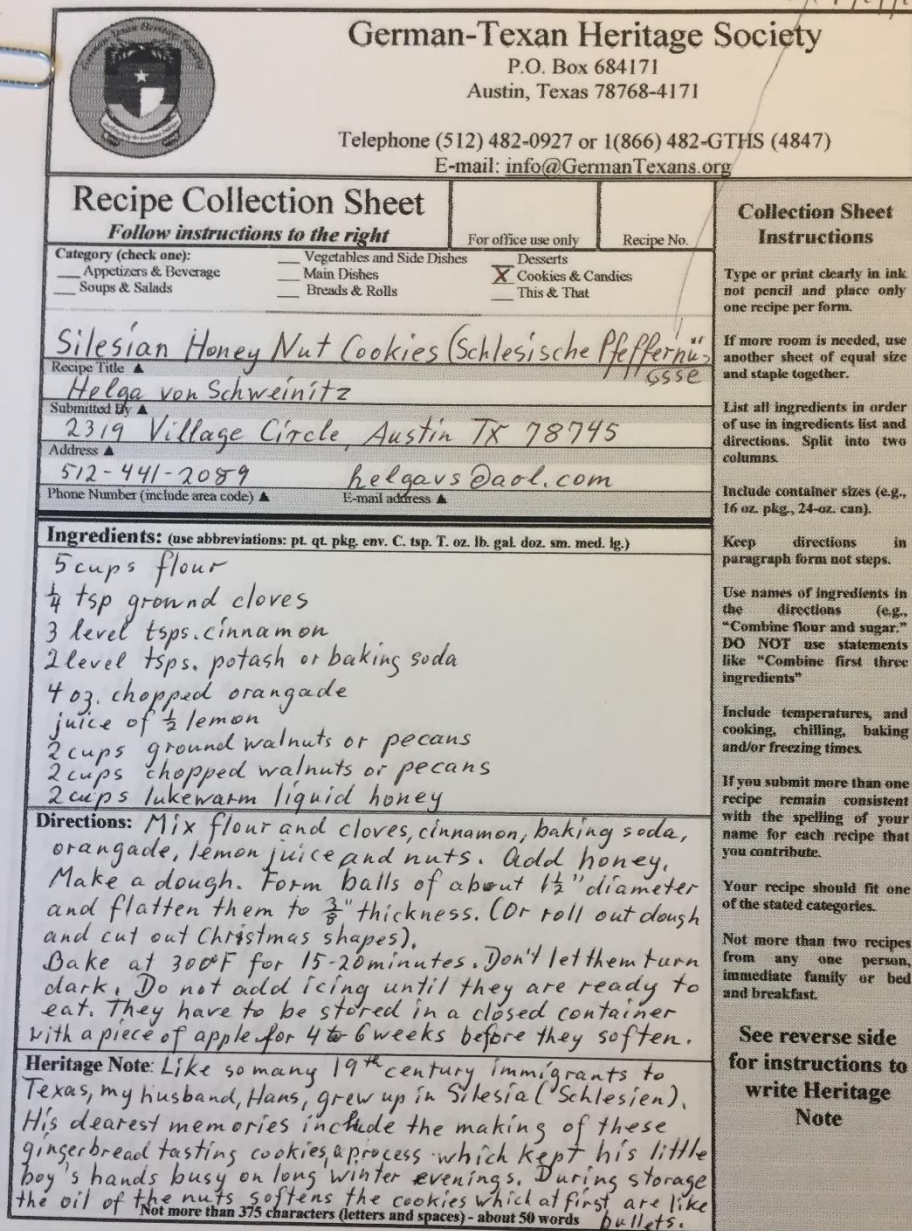 German-Texan Heritage Society
P.O. Box 684171
Austin, Texas 78768-4171
Telephone (512) 482-0927 or 1(866) 482-GTHS (4847)
E-mail: info@GermanTexans.org
Recipe Collection Sheet
Follow instructions to the right
For office use only
Recipe No.
Category (check one):
__ Appetizers & Beverage
__ Soups & Salads
__ Vegetables and Side Dishes
__ Main Dishes
__ Breads & Rolls
__ Desserts
X Cookies & Candies
__ This & That
Silesian Honey Nut Cookies (Schlesische Pfeffernü,
sse
Recipe Title ▲
Helga von Schweinitz
Submitted By ▲
2319 Village Circle, Austin TX 78745
Address ▲
512-441-2089 helgavs@aol.com
Phone Number (include area code) ▲ E-mail address ▲
Ingredients: (use abbreviations: pt. qt. pkg. env. C. tsp. T. oz. lb. gal. doz. sm. med. lg.)
5 cups flour
¼ tsp ground cloves
3 level tsps. cinnamon
2 level tsps. potash or baking soda
4 oz. chopped orangade
juice of ½ lemon
2 cups ground walnuts or pecans
2 cups chopped walnuts or pecans
2 cups lukewarm liquid honey
Directions: Mix flour and cloves, cinnamon, baking soda,
orangade, lemon juice and nuts. Add honey.
Make a dough. Form balls of about 1½" diameter
and flatten them to ⅜" thickness. (Or roll out dough
and cut out Christmas shapes).
Bake at 300°F for 15-20 minutes. Don't let them turn
dark. Do not add icing until they are ready to
eat. They have to be stored in a closed container
with a piece of apple for 4 to 6 weeks before they soften.
Heritage Note: Like so many 19th century immigrants to
Texas, my husband, Hans, grew up in Silesia (Schlesien).
His dearest memories include the making of these
gingerbread tasting cookies, a process which kept his little
boy's hands busy on long winter evenings. During storage
the oil of the nuts softens the cookies which at first are like
bullets.
Not more than 375 characters (letters and spaces) - about 50 words
Collection Sheet
Instructions
Type or print clearly in ink
not pencil and place only
one recipe per form.
If more room is needed, use
another sheet of equal size
and staple together.
List all ingredients in order
of use in ingredients list and
directions. Split into two
columns.
Include container sizes (e.g.,
16 oz. pkg., 24-oz. can).
Keep directions in
paragraph form not steps.
Use names of ingredients in
the directions (e.g.,
"Combine flour and sugar."
DO NOT use statements
like "Combine first three
ingredients"
Include temperatures, and
cooking, chilling, baking
and/or freezing times.
If you submit more than one
recipe remain consistent
with the spelling of your
name for each recipe that
you contribute.
Your recipe should fit one
of the stated categories.
Not more than two recipes
from any one person,
immediate family or bed
and breakfast.
See reverse side
for instructions to
write Heritage
Note